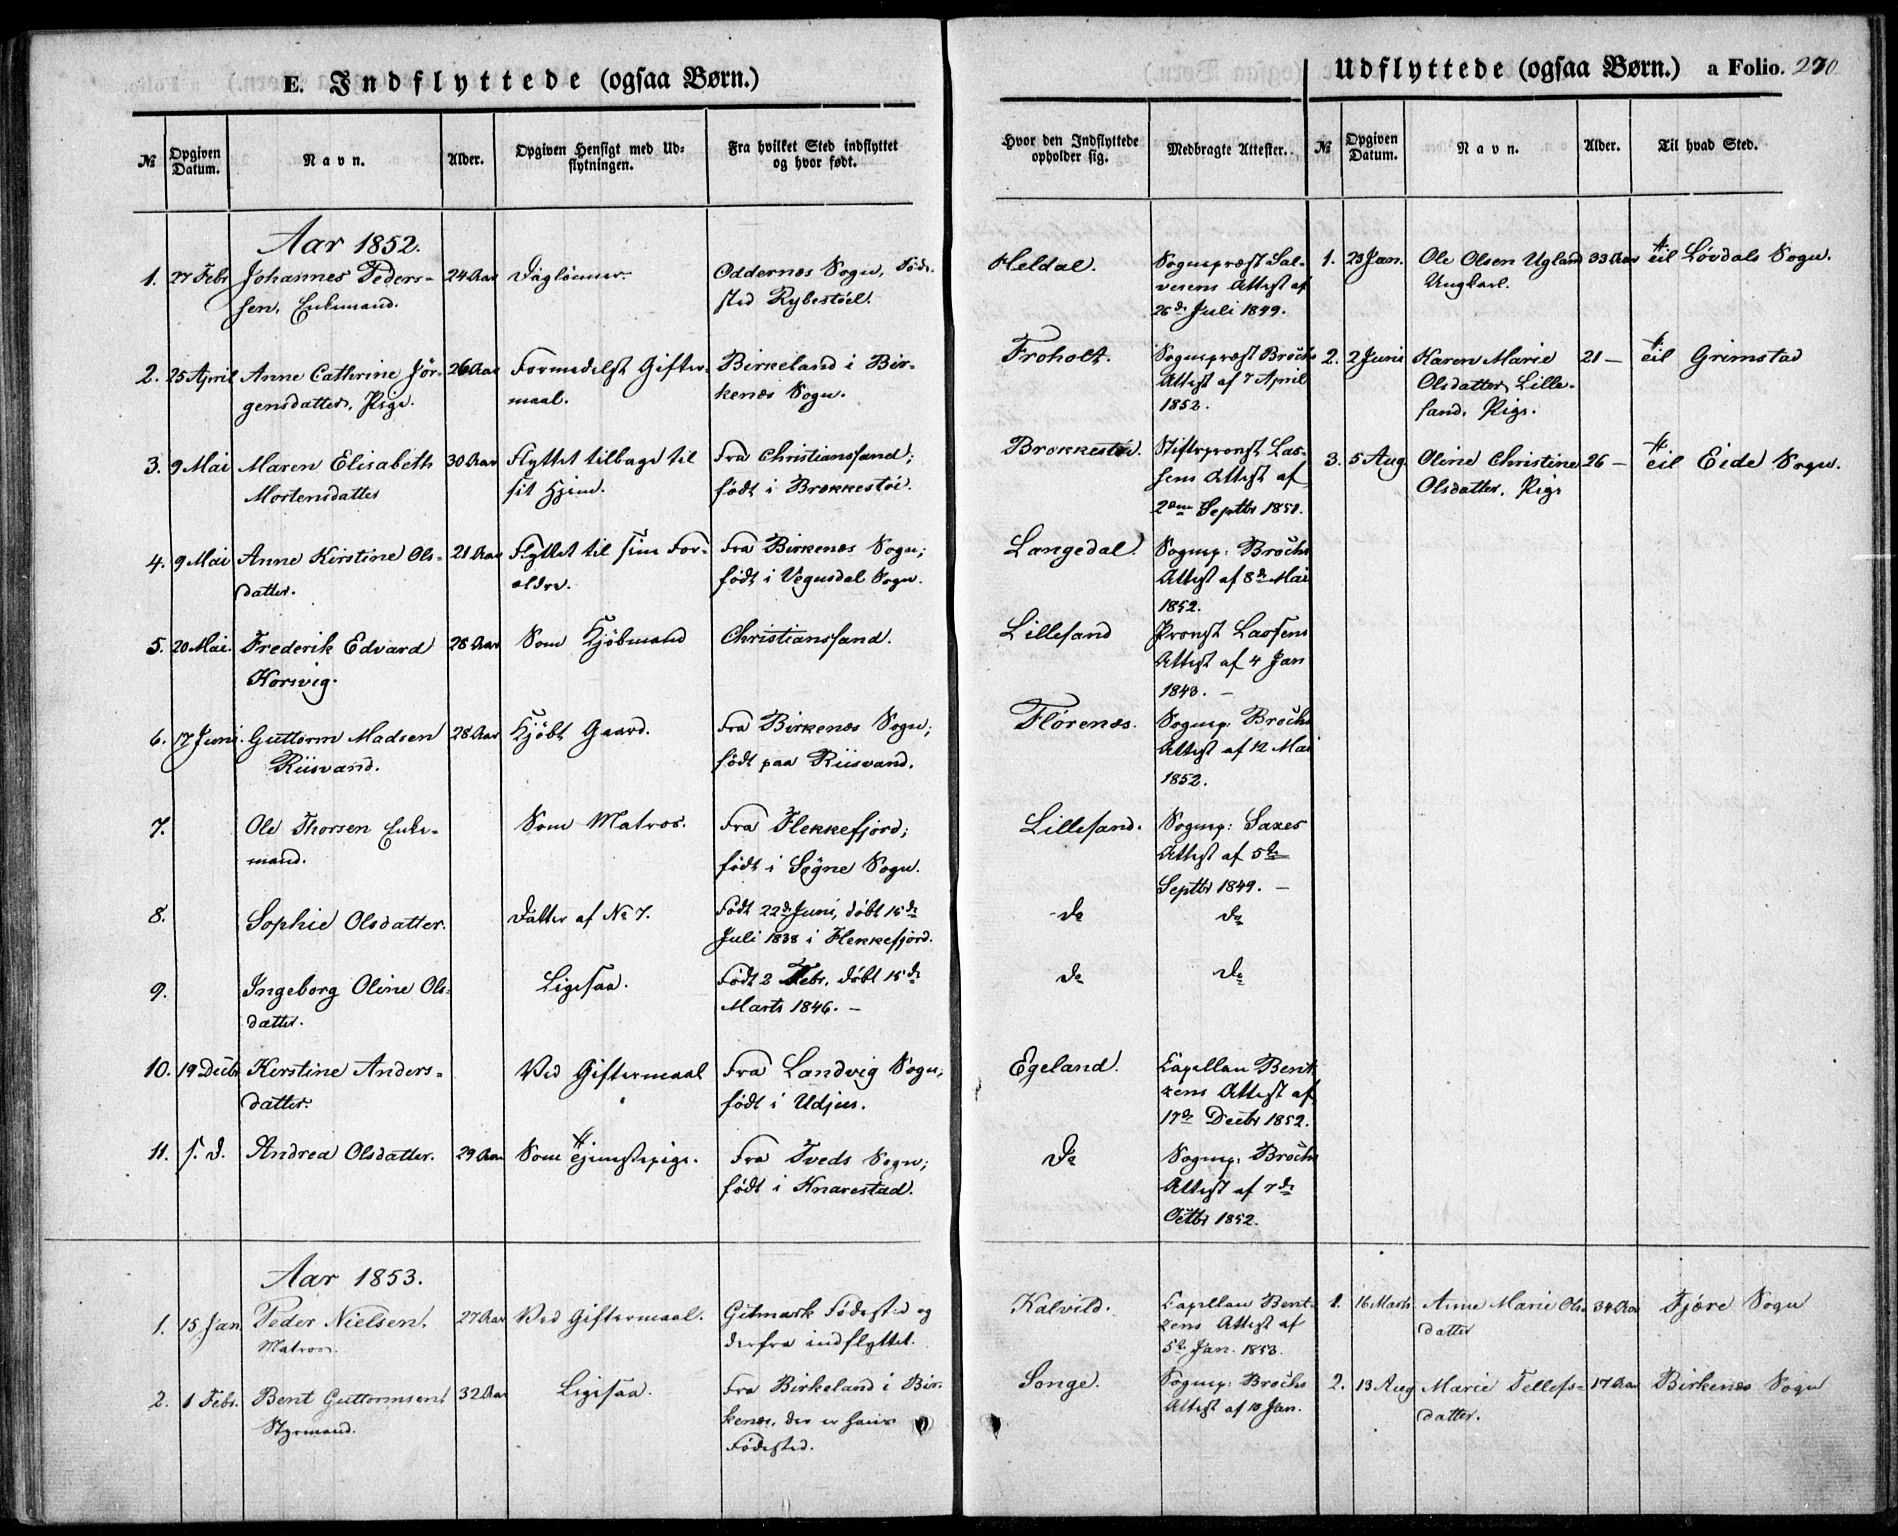 E. Indflyttede (ogsaa Børn.)
Udflyttede (ogsaa Børn.) a Folio. 270.
№ Opgiven Datum. Navn. Alder. Opgiven Hensigt med Udflytningen. Fra hvilket Sted indflyttet og hvor født.
Hvor den Indflyttede opholder sig. Medbragte Attester. № Opgiven Datum. Navn. Alder. Til hvad Sted.
Aar 1852.
1. 27 Febr Johannes Peders-
sen, Enkemand.
24 Aar
Dagleiemer.
Oddernes Sogn, Føde-
sted Rybestöel.
Heldal.
Sognepræst Sal-
vesens Attest af
26de Juli 1849.
2. 25 April Anne Cathrine Jör-
gensdatter, Pige.
26 Aar
Formedelst Gifter-
maal.
Birkeland i Bir-
kenes Sogn.
Froholt.
Sognepræst Brochs
Attest af 7 April
1852.
3. 9 Mai Maren Elisabeth
Mortensdatter
30 Aar
Flyttet tilbage til
sit Hjem.
Fra Christianssand;
født i Brekkestöe.
Brekkestöe.
Stiftsprovst Las-
sens Attest af
2den Septbr 1851.
4. 9 Mai Anne Kirstine Ols-
datter.
21 Aar
Flyttet til sine For-
ældre.
Fra Birkenes Sogn;
født i Vegusdal Sogn.
Langedal.
Sognep: Brochs
Attest af 8de Mai
1852.
5. 20 Mai. Frederik Edvard
Korsvig.
28 Aar
Som Kjöbmand
Christianssand.
Lillesand
Provst Lassens
Attest af 4 Jan
1843. —
6. 17 Juni. Guttorm Madsen
Riisvand.
28 Aar
Kjöbt Gaard.
Fra Birkenes Sogn;
født paa Riisvand.
Flørenes.
Sognep: Brochs
Attest af 12 Mai
1852.
7. Ole Thorsen Enke-
mand.
Som Matros.
Fra Flekkefjord;
født i Søgne Sogn.
Lillesand.
Sognep: Saxes
Attest af 5te
Septbr 1849. —
8. Sophie Olsdatter.
Datter af No 7.
Født 22de Juni, döbt 15de
Juli 1838 i Flekkefjord.
do
do
9. Ingeborg Oline Ols-
datter.
Ligesaa.
Født 2 Febr. döbt 15de
Marts 1846. —
do
do
10. 19 Decbr Kirstine Anders-
datter.
Ved Giftermaal
Fra Landvig Sogn,
født i Udjus.
Egeland.
Capellan Bent-
zens Attest af
17de Decbr 1852.
11. s. d. Andrea Olsdatter.
29 Aar
Som Tjenestepige.
Fra Tveds Sogn;
født i Knarestad.
do
Sognep. Brochs
Attest af 7de
Octbr 1852.
1. 23 Jan. Ole Olsen Ugland
Ungkarl.
33 Aar
til Løvdals Sogn.
2. 2 Juni Karen Marie
Olsdatter, Lille-
sand, Pige.
21 —
til Grimstad
3. 5 Aug. Oline Christine
Olsdatter, Pige
26 —
til Eide Sogn.
Aar 1853.
1. 15 Jan. Peder Nielsen,
Matros.
27 Aar
Ved Giftermaal.
Gitmark Fødested og
derfra indflyttet.
Kalvild.
Capellan Bent-
zens Attest af
5te Jan. 1853.
2. 1 Febr. Bent Guttormsen
Styrmand.
32 Aar
Ligesaa.
Fra Birkeland i Bir-
kenes, der er hans
Fødested.
Songe.
Sognep: Brochs
Attest af 10 Jan.
1. 16 Marts Anne Marie Ols-
datter
34 Aar
Fjære Sogn
2. 13 Aug Marie Tellefs-
datter.
17 Aar
Birkenes Sogn